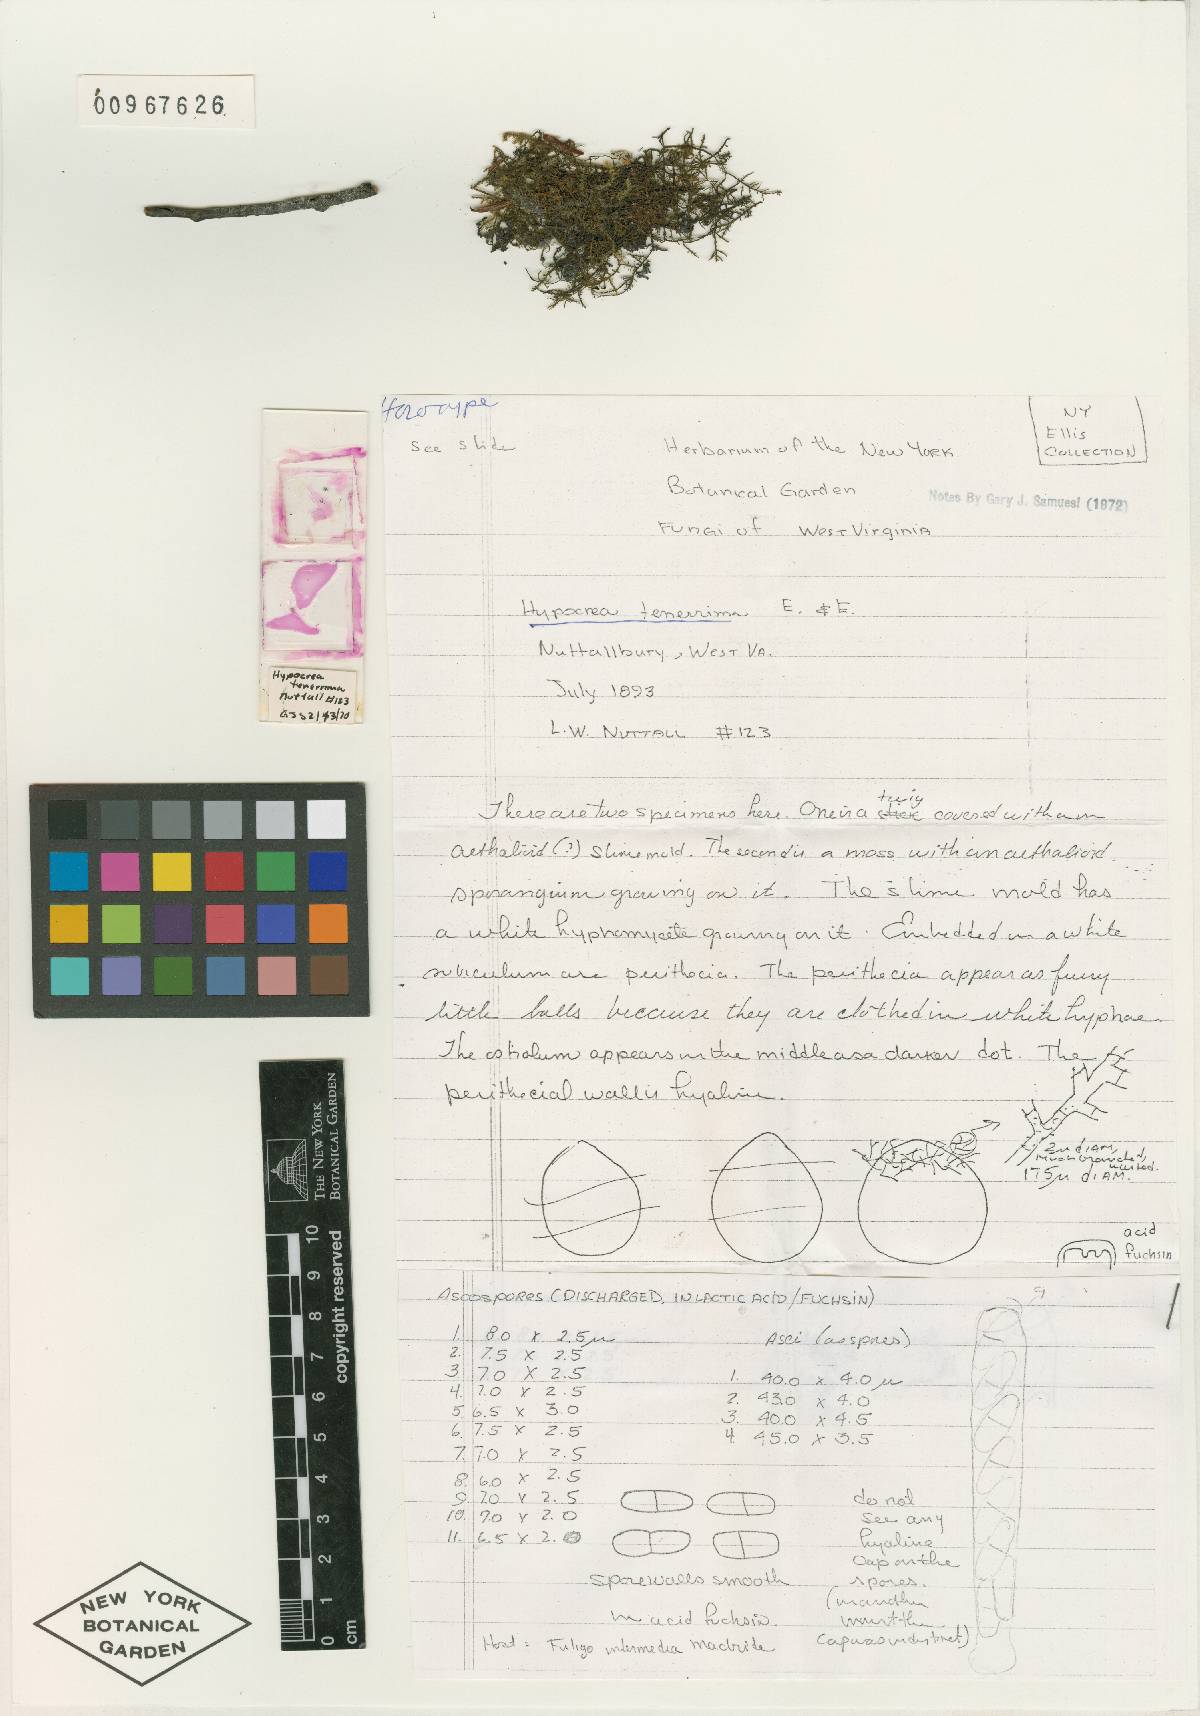 00967626
Holotype
See slide
NY
Ellis
COLLECTION
Herbarium of the New York
Botanical Garden
Notes By Gary J. Samuesl (1972)
Fungi of West Virginia
Hypocrea tenerrima E. & E.
Nuttallbury, West Va.
July 1893
L.W. Nuttall #123
Hypocrea
tenerrima
Nuttall #123
GJS 2/13/70
There are two specimens here. One is a stick twig covered with an
aethalioid (?) slime mold. The second is a moss with an aethalioid
sporangium growing on it. The slime mold has
a white hyphomycete growing on it. Embedded in a white
subiculum are perithecia. The perithecia appear as furry
little balls because they are clothed in white hyphae.
The ostiolum appears in the middle as a darker dot. The
perithecial wall is hyaline.
2u diam,
Much branched,
175u diam.
acid
fuchsin
Ascospores (discharged, in lactic acid/fuchsin)
1. 8.0 x 2.5u
2. 7.5 x 2.5
3. 7.0 x 2.5
4. 7.0 x 2.5
5. 6.5 x 3.0
6. 7.5 x 2.5
7. 7.0 x 2.5
8. 6.0 x 2.5
9. 7.0 x 2.5
10. 7.0 x 2.0
11. 6.5 x 2.0
Asci
1. 40.0 x 4.0u
2. 43.0 x 4.0
3. 40.0 x 4.5
4. 45.0 x 3.5
do not
see any
hyaline
cap on the
spores.
spore walls smooth
in acid fuchsin.
Host: Fuligo intermedia Macbride
THE NEW YORK
BOTANICAL GARDEN
copyright reserved
10
9
8
7
6
5
4
3
2
1
0
cm
NEW YORK
BOTANICAL
GARDEN